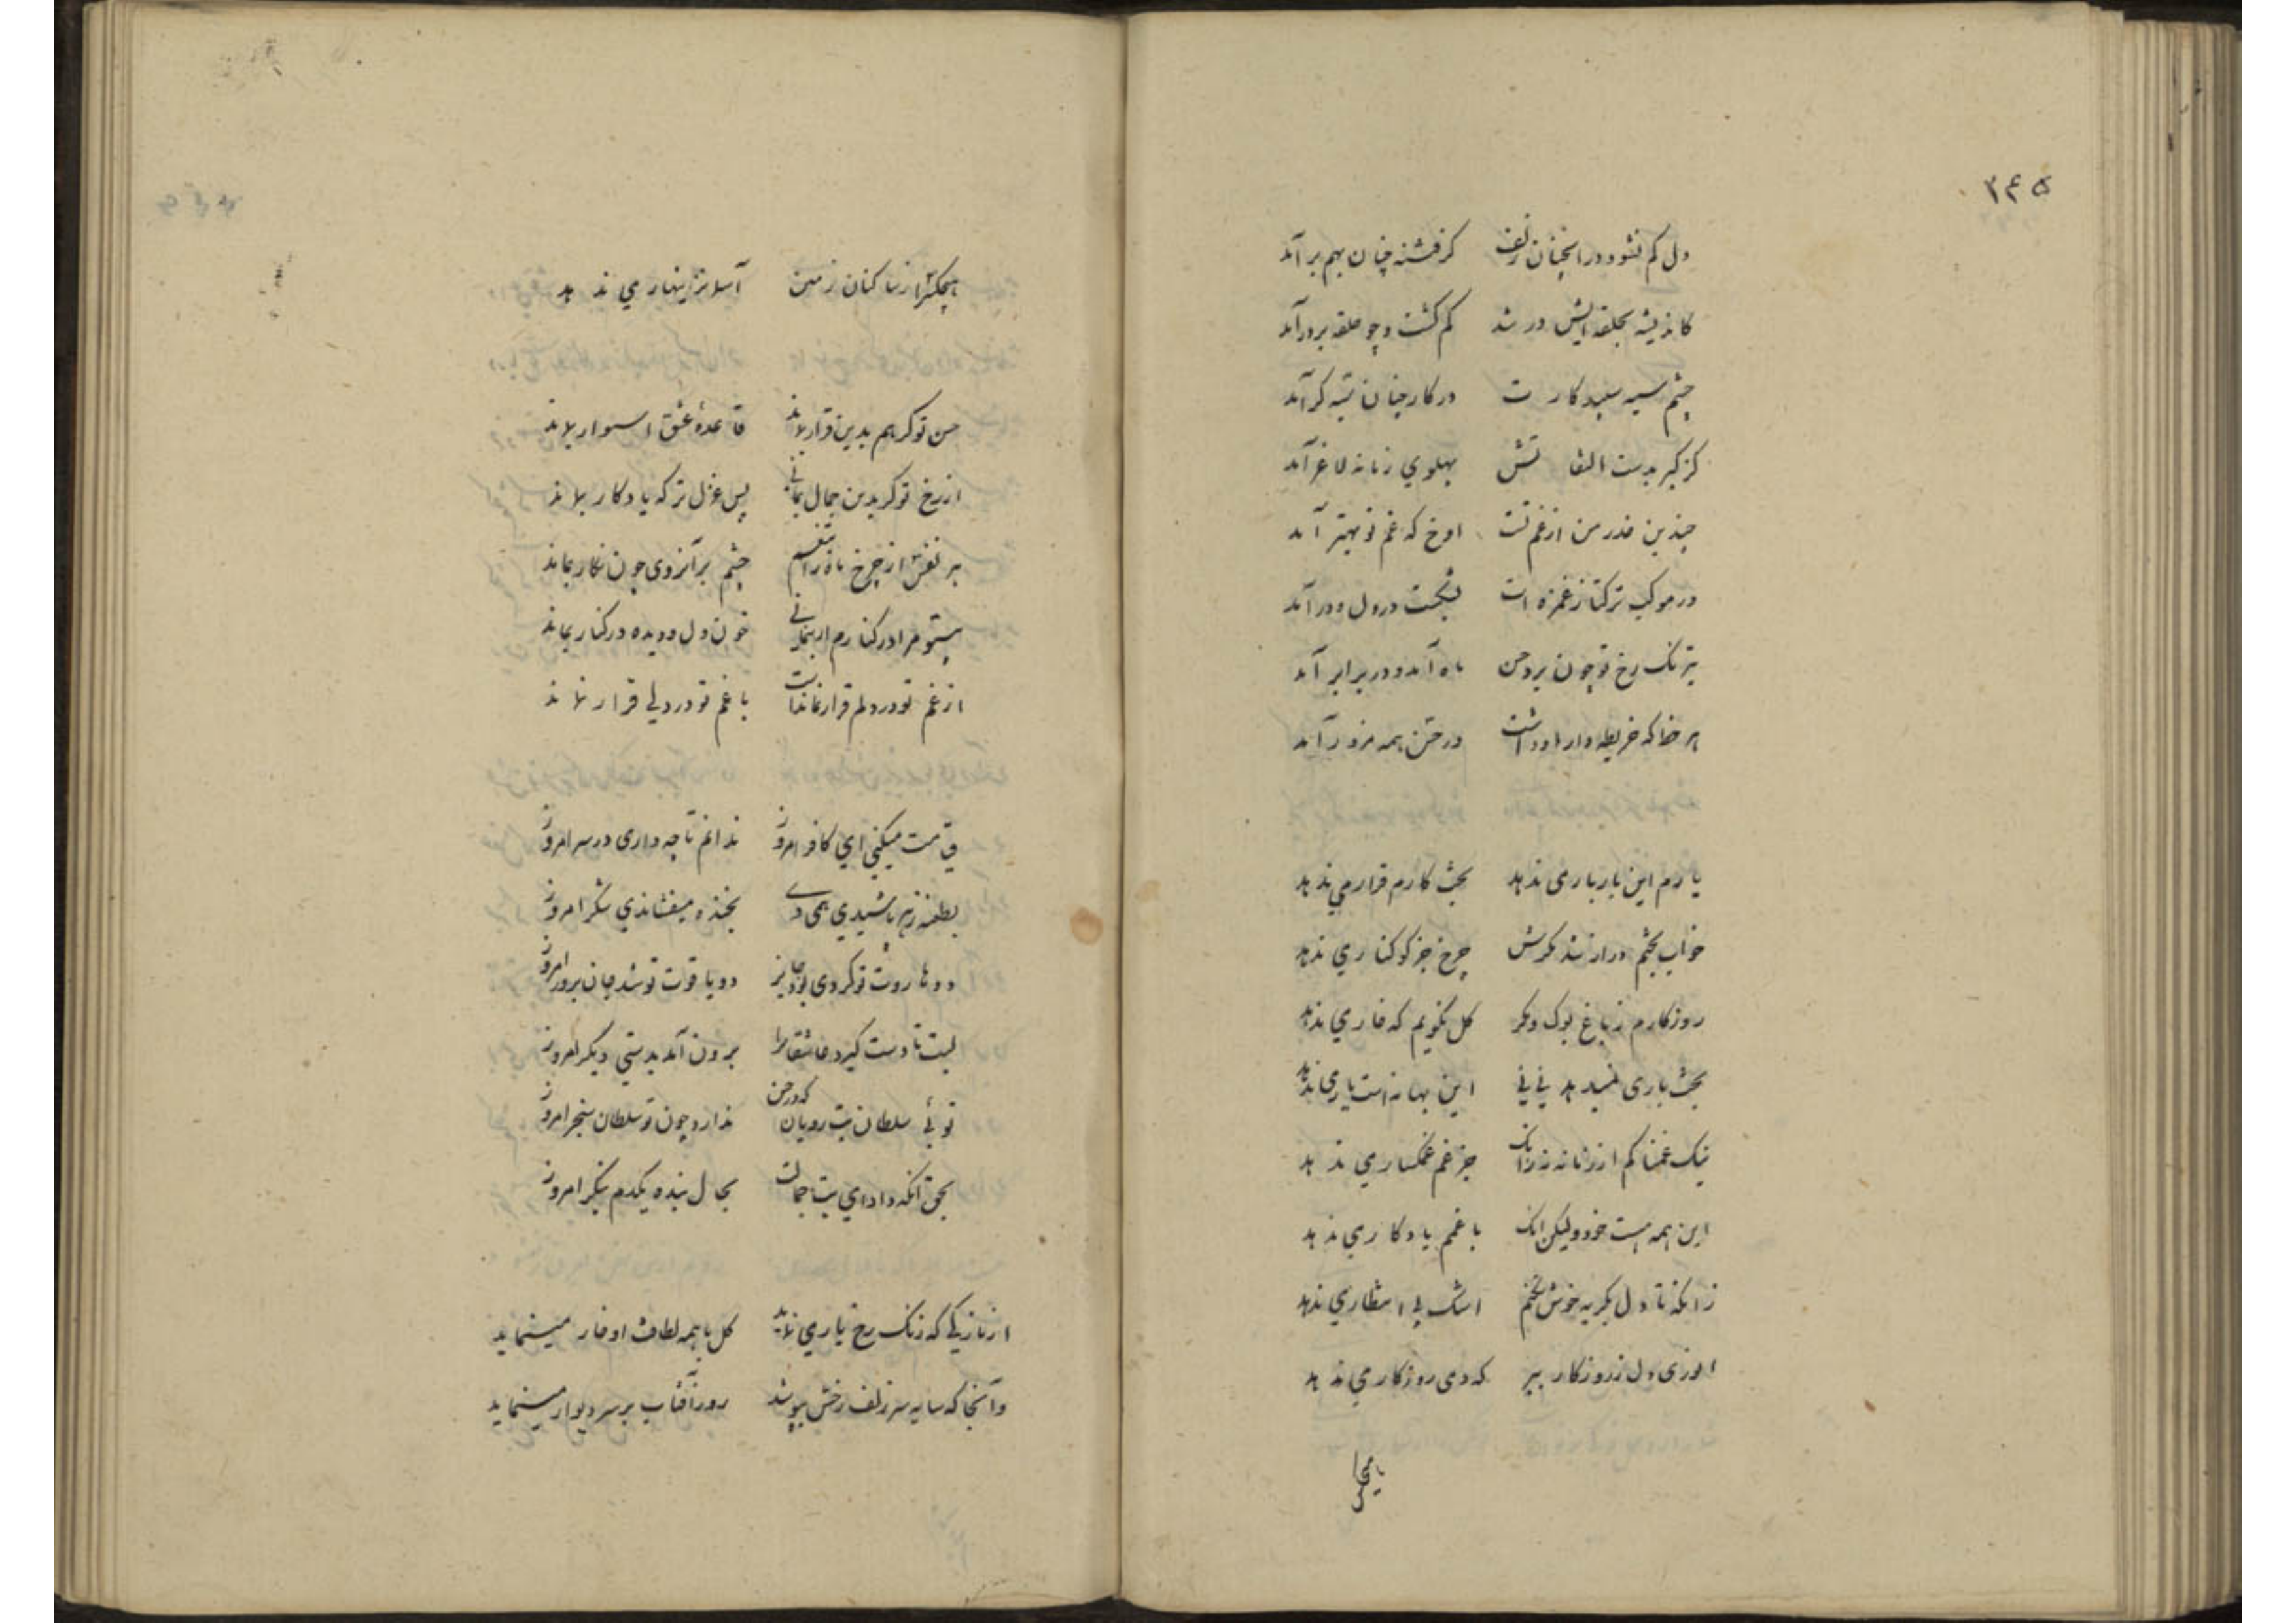 ۲۴۵
دل کم نشود در انچنان زلف کز فتنه چنان بهم برآمد
کاندیشه بحلقه ایش در شد کم کشت و چو حلقه بر در آمد
چشم سیه سپید کارت در کار چنان سیه کر آمد
کز کبر بدست التفاتش پهلوی زمانه لاغر آمد
چندین قدر من از غم تست اوخ که غم تو بهتر آمد
در موکب ترکتاز غمزه ات بشکست در دل و در آمد
نیرنک رخ تو چون برد حسن ماه آمد و در برابر آمد
هر خط که خریطه دار او داشت در حسن همه مزور آمد
یارم این بار بار می ندهد بخت کارم قرار می ندهد
خواب بچشم در ار شد مکرش چرخ جز کوکنار می ندهد
روزکارم ز باغ بوک و مکر کل نکویم که خار می ندهد
بخت یاری نمیدهد نی نی این بهانه است یار می ندهد
نیک غمناکم از زمانه از انک جز غم غمکسار می ندهد
این همه هست خود ولیکن انک با غمم یادکار می ندهد
زانکه تا دل بکریه خوش نکنم اشک بی انتظار می ندهد
انوری دل ز روزکار ببر که دمی روزکار می ندهد
هیچکس را ز ساکنان زمین آسمان زینهار می ندهد
حسن تو کر هم بدین قرار بماند قاعدهٔ عشق استوار بماند
از رخ تو کر بدین جمال بمانی بس غزل تر که یادکار بماند
هر نفس از چرخ ماه را بتعجب چشم بر آن روی چون نکار بماند
بیتو مرا در کنارم ار بنمانی خون دل و دیده در کنار بماند
از غم تو در دلم قرار نماندست با غم تو در دلی قرار نماند
قیامت میکنی ای کافر امروز ندانم تا چه داری در سر امروز
بطعنه زهر پاشیدی همی دی بخنده میفشاندی شکر امروز
دو هاروت تو کردی بود جان بر دو یاقوت تو شد جان پرور امروز
لبت تا دست کیرد عاشقانرا برون آمد بدستی دیکر امروز
توئی سلطان بت رویان که در حسن ندارد چون تو سلطان سنجر امروز
بحق آنکه داد ای بت جمالت بحال بنده یکدم بنکر امروز
از نازکی که رنک رخ یار می نماید کل با همه لطافت او خار مینماید
وآنجا که سایه سر زلف رخش بپوشد روز آفتاب بر سر دیوار مینماید